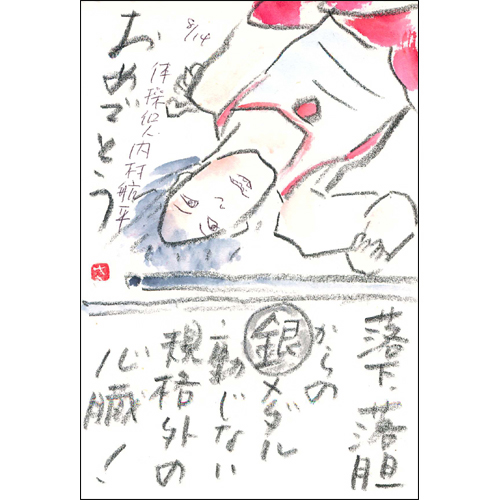 8/14
おめでとう
体操個人内村航平
落下、落胆
からの
銀メダル
動じない
規格外の
心臓!